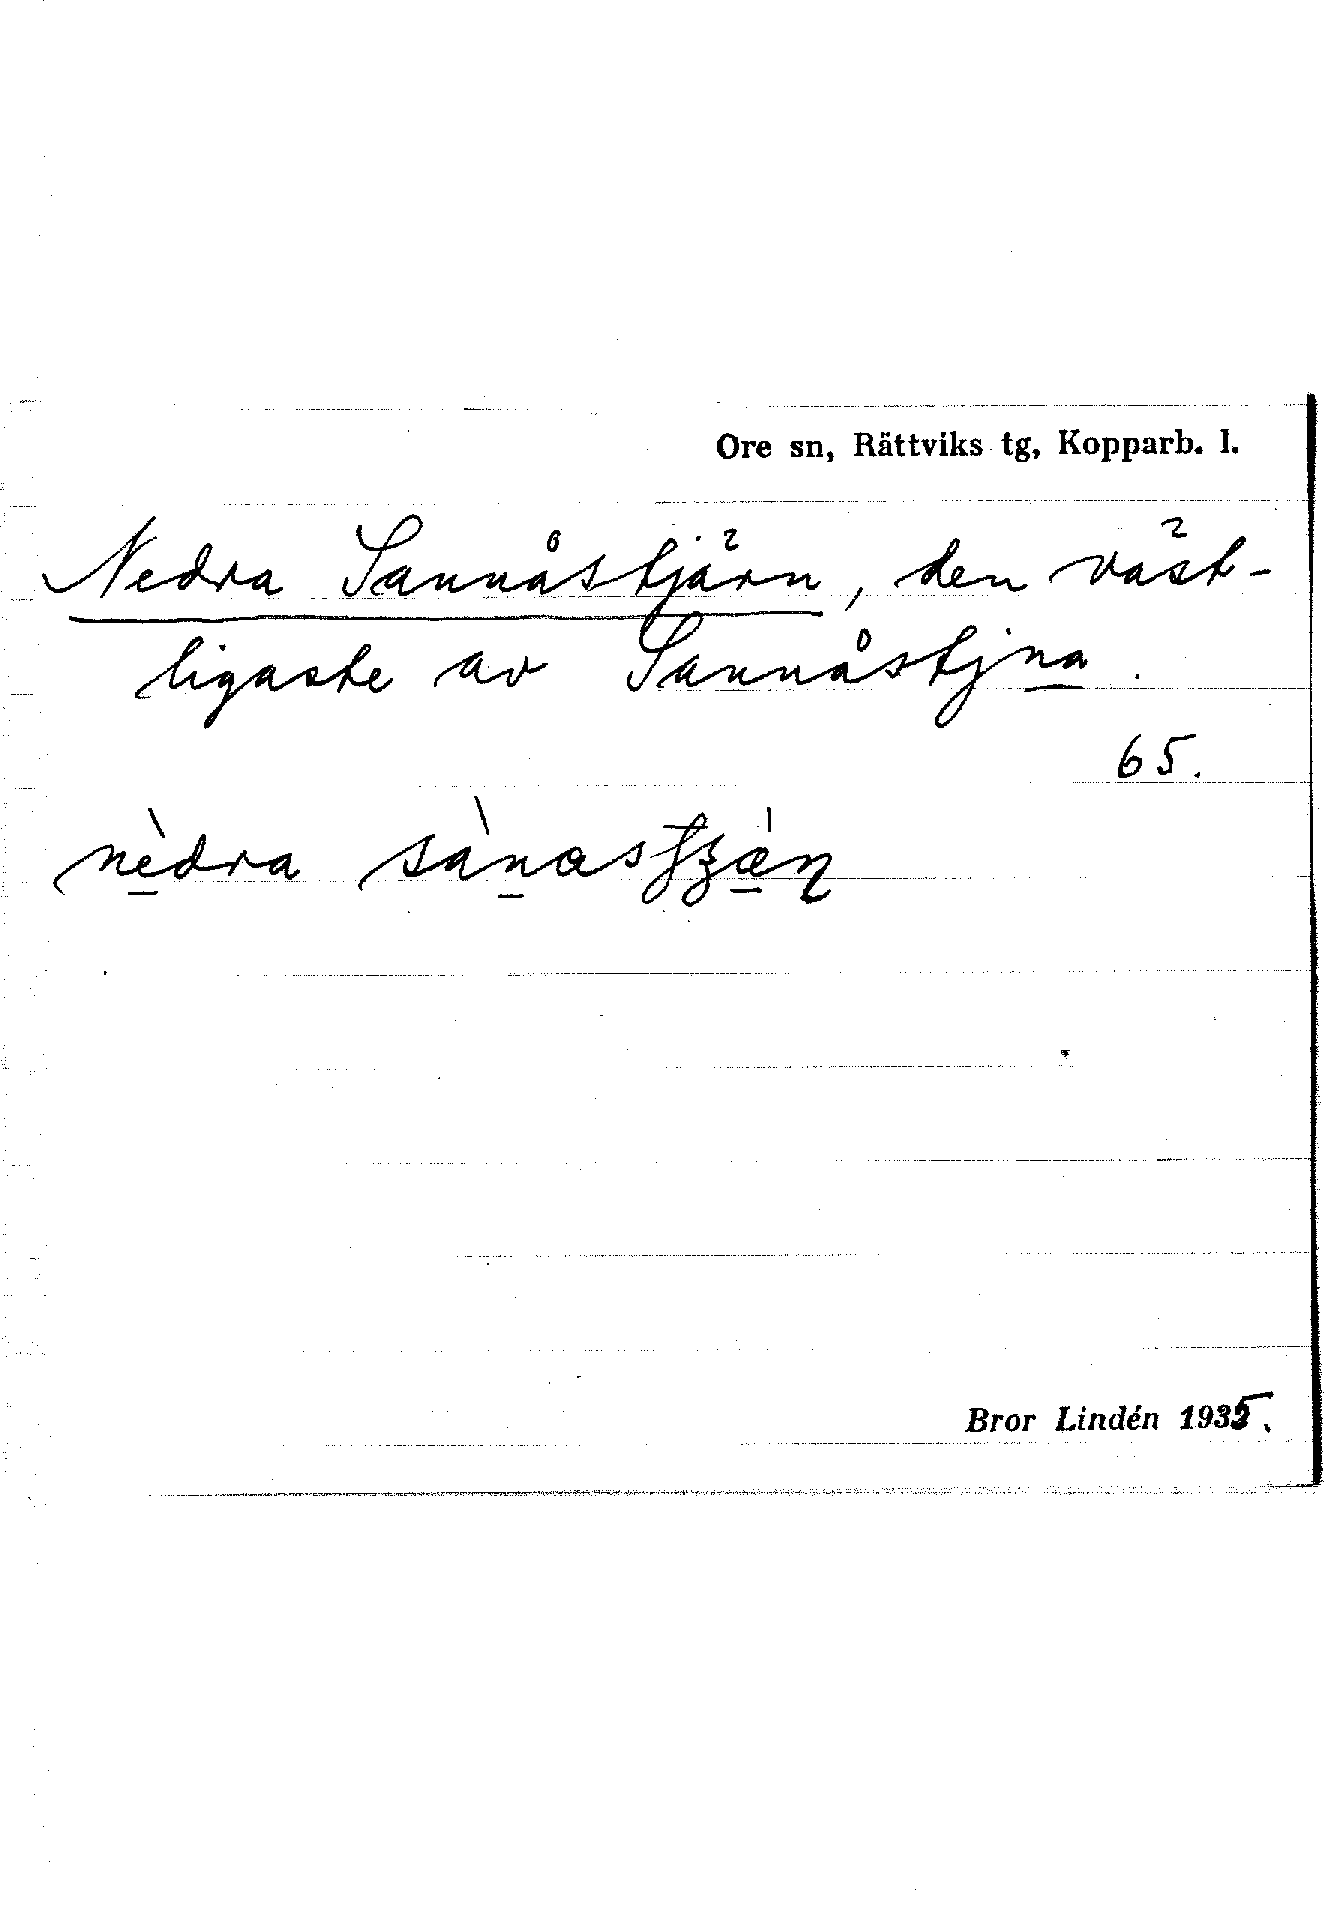 Ore sn, Rättviks tg, Kopparb. l.
Nedra Sannåstjärn, den väst-
ligaste av Sannåstjna.
65.
nèdra
Bror Lindén 1935.